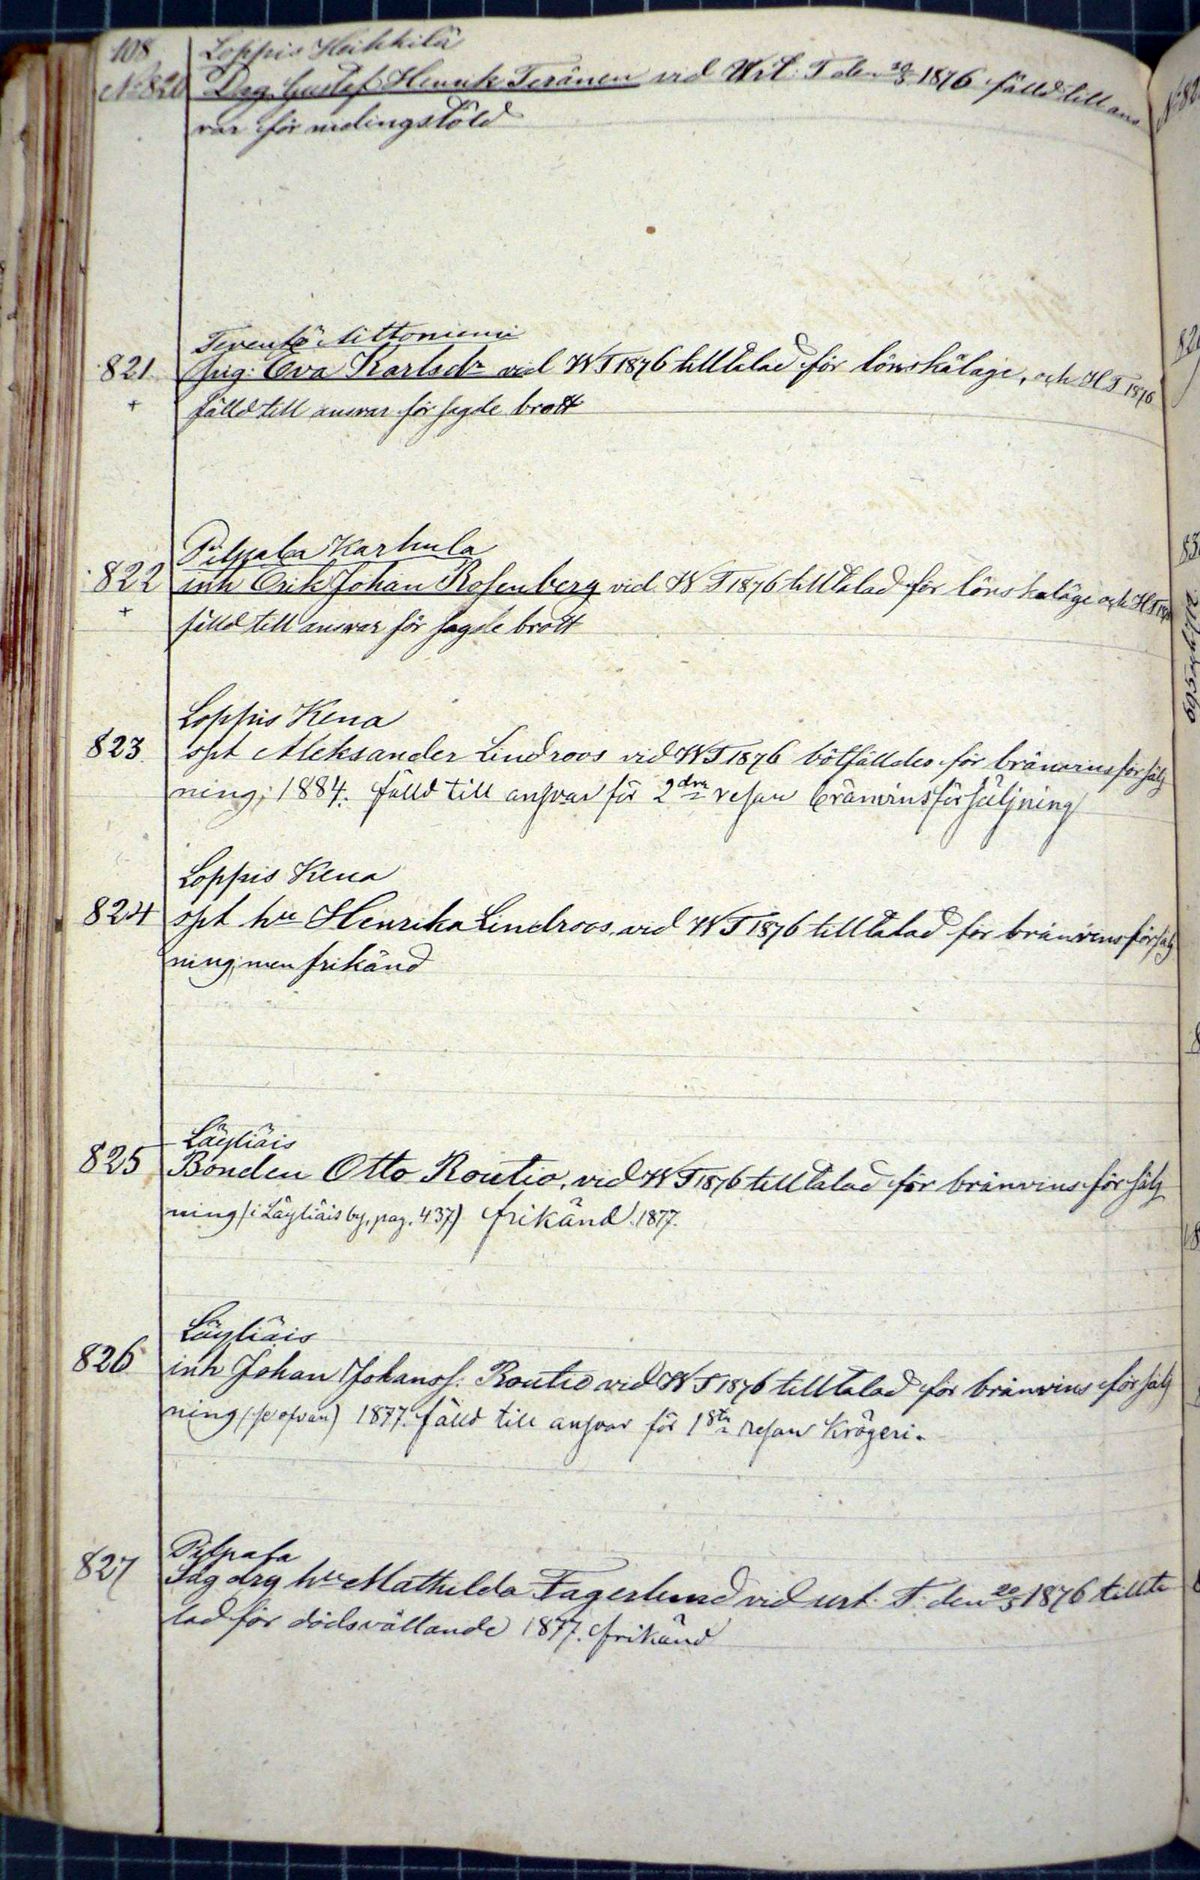 108 Loppis Heikkilä
No 820 Drg. Gustaf Henrik Teränen vid Urt. T. den 20/5 1876 fälld till ans
var för nidingstöld
Teventö Aittoniemi
821 pig. Eva Karlsdr vid WT 1876 tilltalad för lönskaläge, och HT 1876
+ fälld till ansvar för sagde brott
Pilpala Karhula
822 inh Erik Johan Rosenberg vid WT 1876 tilltalad för lönskaläge och HT 1876
+ fälld till ansvar för sagde brott
Loppis Kena
823 spt Aleksander Lindroos vid WT 1876 bötfälldes för bränvinsförsälj
ning; 1884. fälld till ansvar för 2dra resan bränvinsförsäljning
Loppis Kena
824 spt hu Henrika Lindroos, vid WT 1876 tilltalad för bränvinsförsälj
ning, men frikänd
Läyliäis
825 Bonden Otto Routio, vid WT 1876 tilltalad för bränvinsförsälj
ning (i Läyliäis by, pag. 437) frikänd. 1877.
Läyliäis
826 inh Johan Johanss: Routio vid WT 1876 tilltalad för bränvinsförsälj
ning (se ofvan) 1877. fälld till ansvar för 1sta resan Krögeri.
Pilpala
827 Såg drg hu Mathilda Fagerlund vid urt. T. den 20/5 1876 tillta
lad för dödsvållande 1877. frikänd